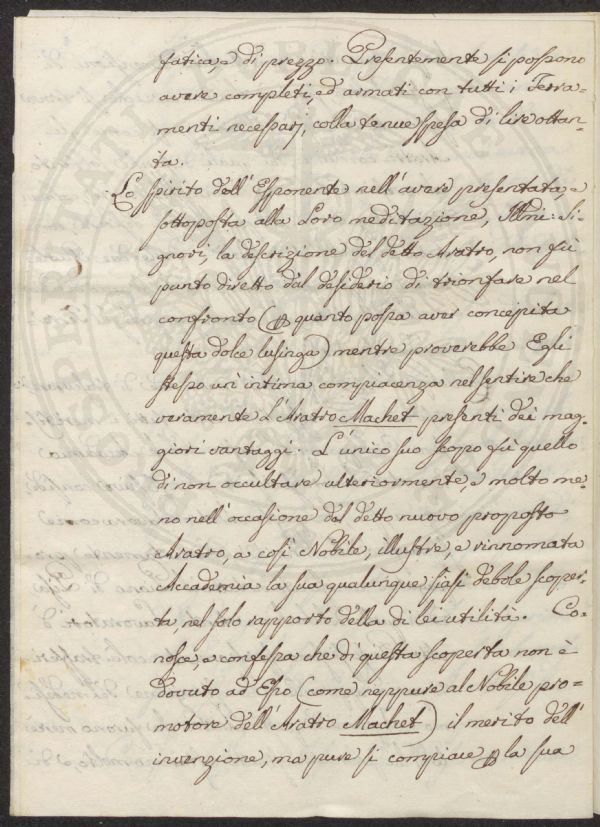 fatica, e di prezzo. Presentemente si possono
avere completi, ed armati con tutti i Ferra-
menti necessarj, colla tenue spesa di lire ottan-
ta.
Lo spirito dell'Esponente nell'avere presentata, e
sottoposta alla Loro meditazione, Illmi: Si-
gnori, la descrizione del detto Aratro, non fù
punto diretto dal desiderio di trionfare nel
confronto (quantunque possa aver concepita
questa dolce lusinga) mentre proverebbe Egli
stesso un'intima compiacenza nel sentire che
veramente l'Aratro Machet presenti dei mag-
giori vantaggi. L'unico suo scopo fù quello
di non occultare ulteriormente, e molto me-
no nell'occasione del detto nuovo proposto
Aratro, a così Nobile, illustre, e rinnomata
Accademia la sua qualunque siasi debole scoper-
ta, nel solo rapporto della di lei utilità. Co-
nosce, e confessa che di questa scoperta non è
dovuto ad Esso (come neppure al Nobile pro-
motore dell'Aratro Machet) il merito dell'
invenzione, ma pure si compiace la sua